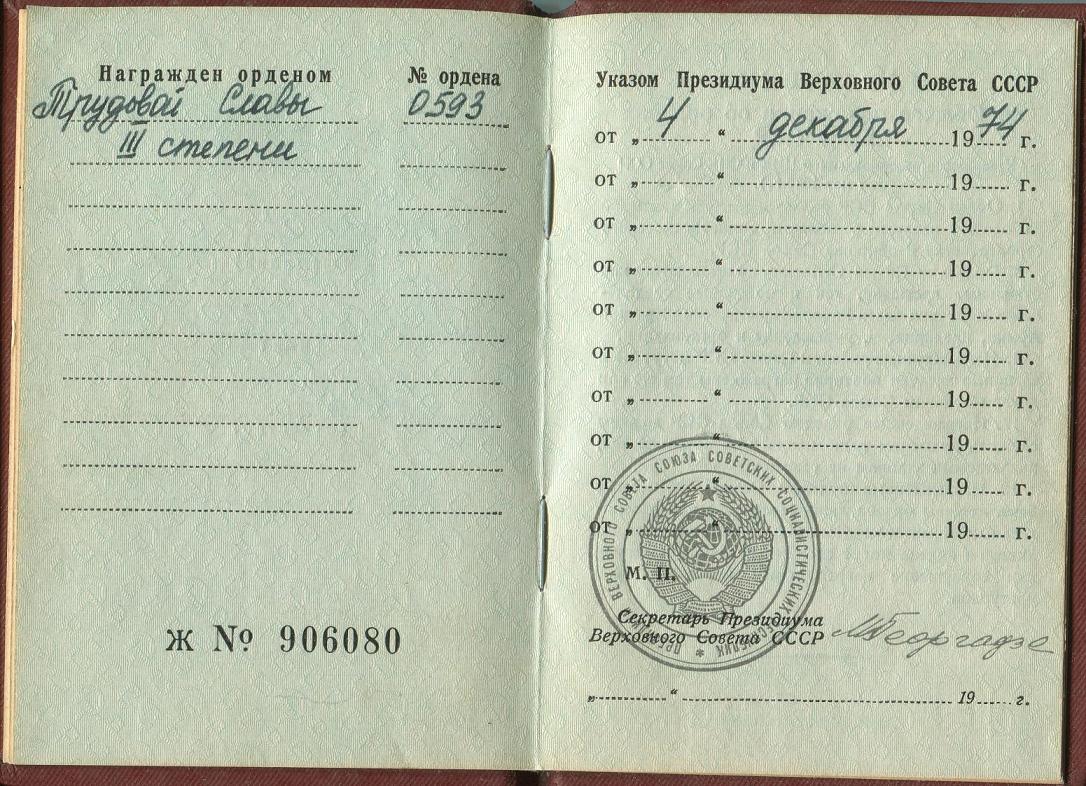 Награжден орденом
№ ордена
Трудовой Славы
0593
III степени
Ж № 906080
Указом Президиума Верховного Совета СССР
от „ 4 “ декабря 1974 г.
от „ “ 19 г.
от „ “ 19 г.
от „ “ 19 г.
от „ “ 19 г.
от „ “ 19 г.
от „ “ 19 г.
от „ “ 19 г.
от „ “ 19 г.
от „ “ 19 г.
ПРЕЗИДИУМ ВЕРХОВНОГО СОВЕТА СОЮЗА СОВЕТСКИХ СОЦИАЛИСТИЧЕСКИХ РЕСПУБЛИК
М. П.
Секретарь Президиума
Верховного Совета СССР
МГеоргадзе
„ “ 19 г.